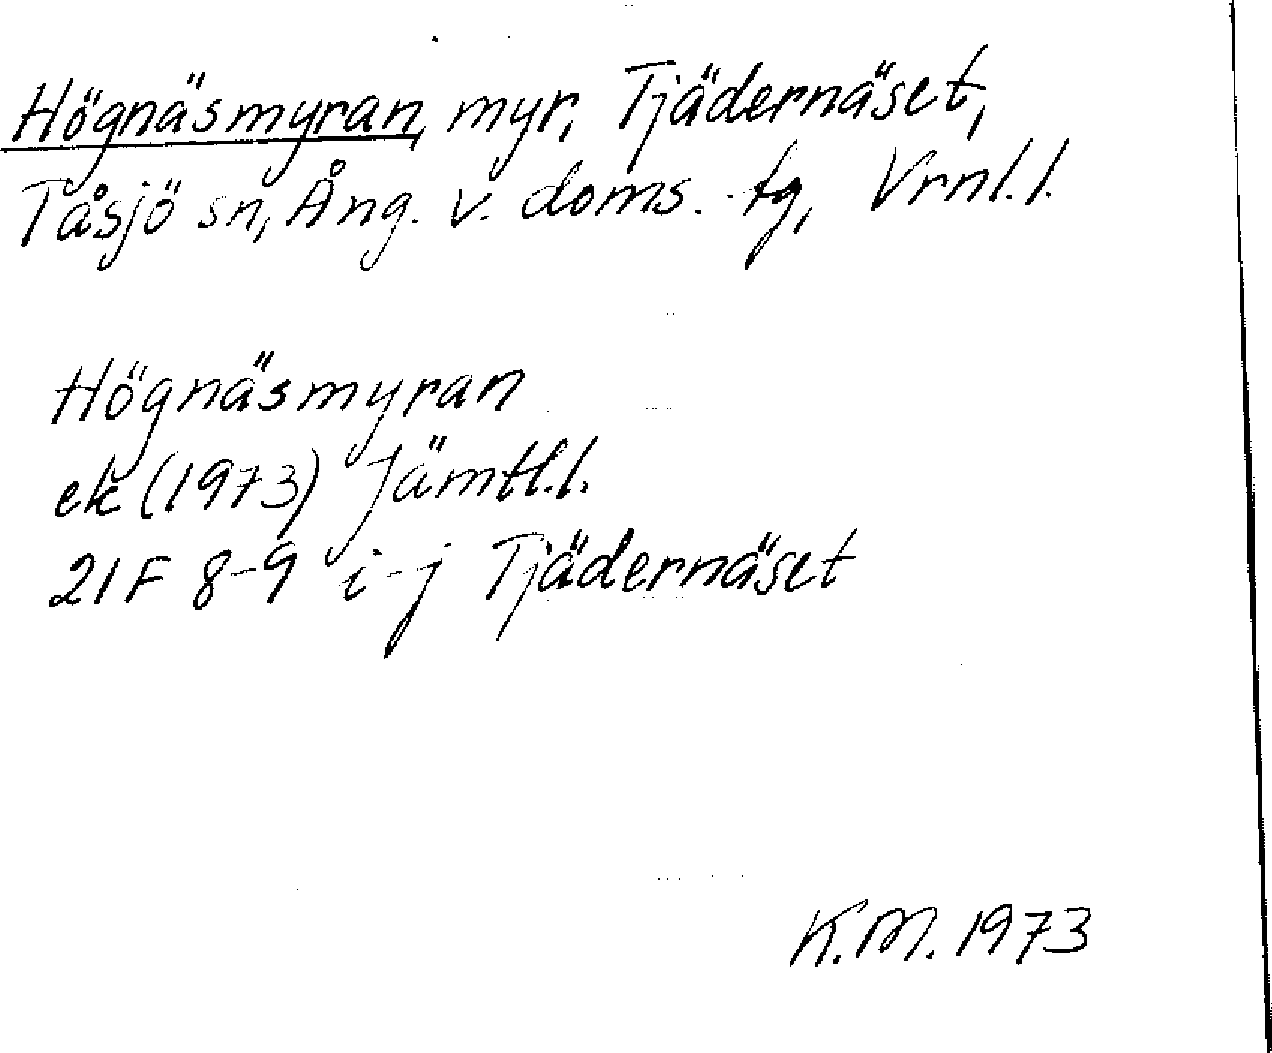 Högnäsmyran, myr, Tjädernäset,
Tåsjö sn, Ång. v. doms. tg, Vrnl. l.
Högnäsmyran
ek (1973) Jämtl. l.
21F 8-9 i-j Tjädernäset
K.M. 1973